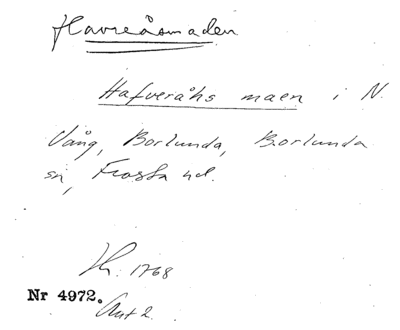 Havreåsmaden
Hafveråhs maen i N.
Vång, Borlunda, Borlunda
sn, Frosta hd.
Lh. 1768
Nr 4972.
Akt 2.